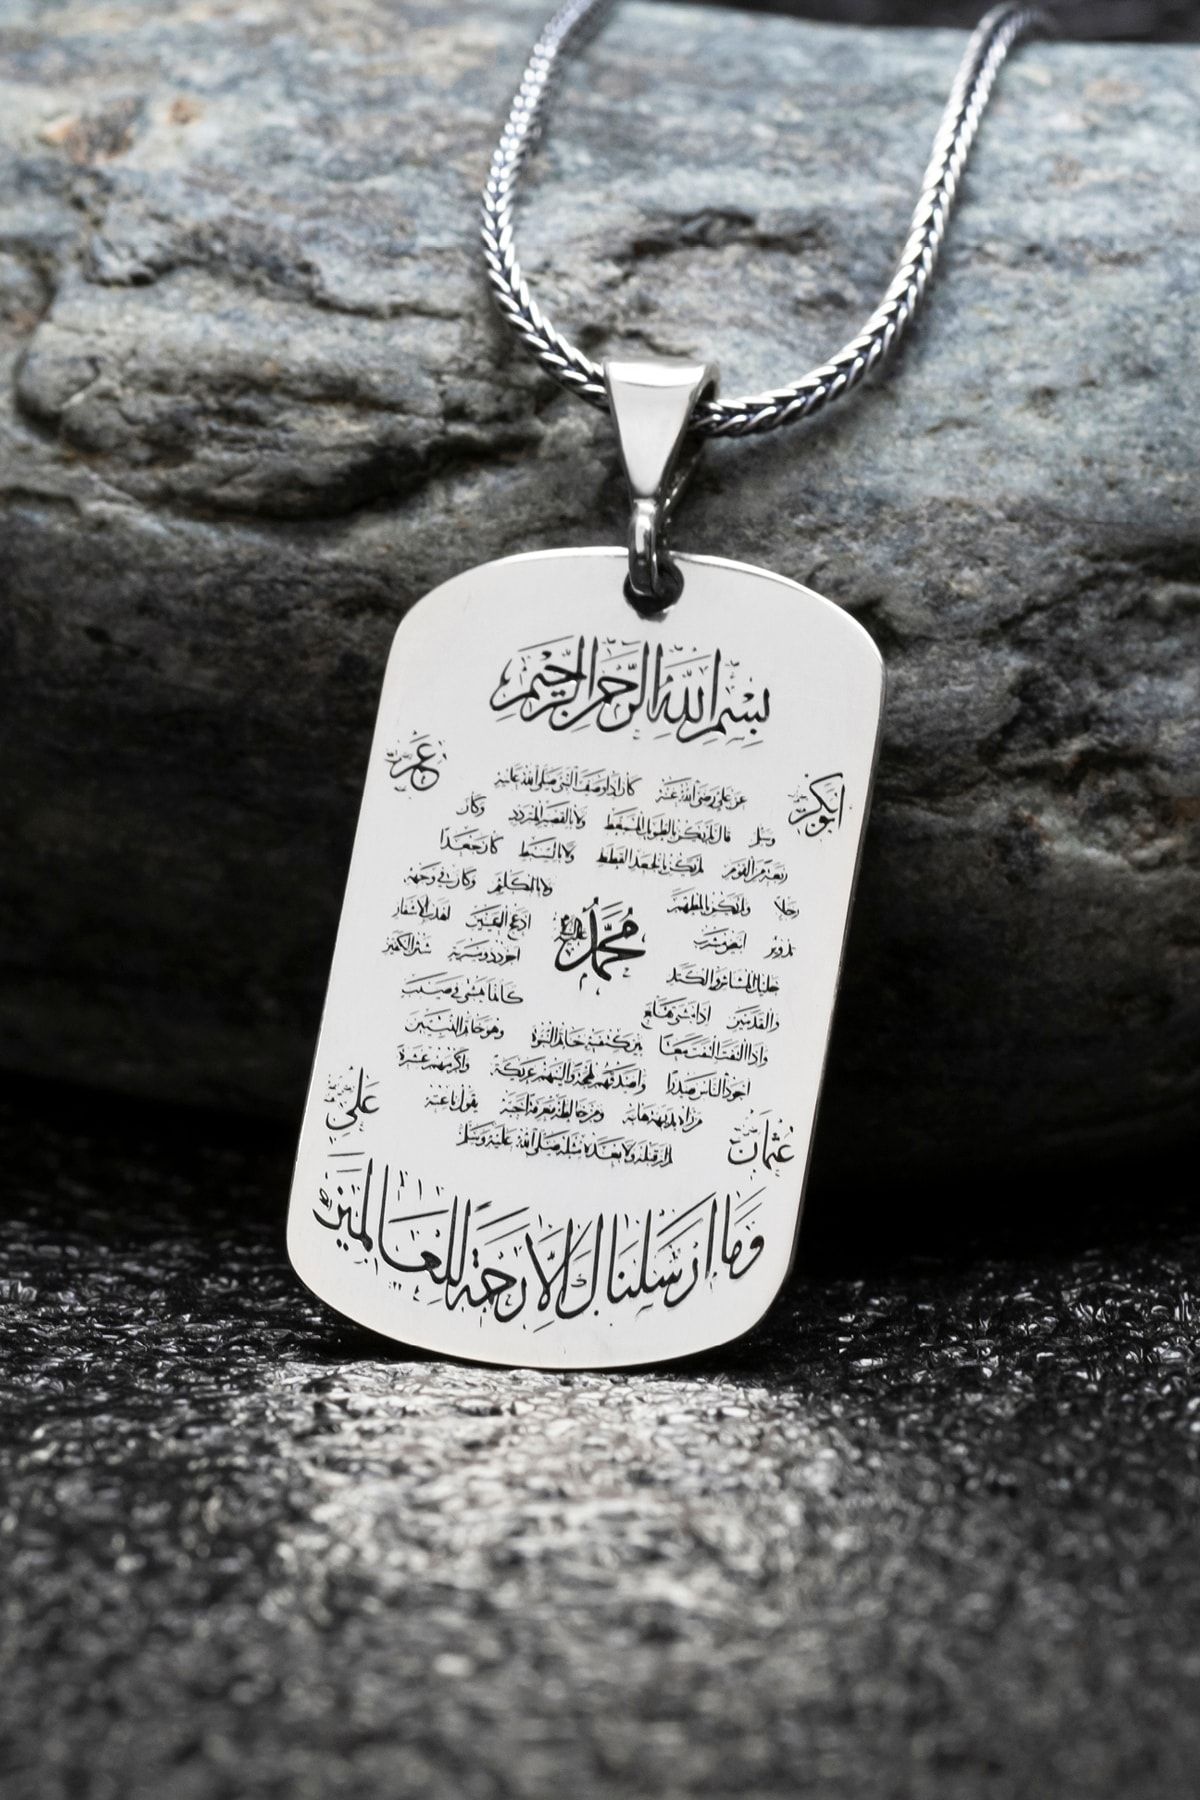 بِسْمِ اللَّهِ الرَّحْمَنِ الرَّحِيمِ
ابوبكر
عمر
عن علي رضي الله عنه كان اذا وصف النبي صلى الله عليه
وسلم قال لم يكن بالطويل الممغط ولا بالقصير المتردد وكان
ربعة من القوم لم يكن بالجعد القطط ولا بالسبط كان جعدا
رجلا ولم يكن بالمطهم ولا بالمكلثم وكان في وجهه
تدوير ابيض مشرب ادعج العينين اهدب الاشفار
جليل المشاش والكتد اجرد ذو مسربة شثن الكفين
والقدمين اذا مشى تقلع كانما يمشي في صبب
واذا التفت التفت معا بين كتفيه خاتم النبوة وهو خاتم النبيين
اجود الناس صدرا واصدقهم لهجة والينهم عريكة واكرمهم عشرة
من راه بديهة هابه ومن خالطه معرفة احبه يقول ناعته
لم ار قبله ولا بعده مثله صلى الله عليه وسلم
مُحَمَّد
عثمان
علي
وما ارسلناك الا رحمة للعالمين